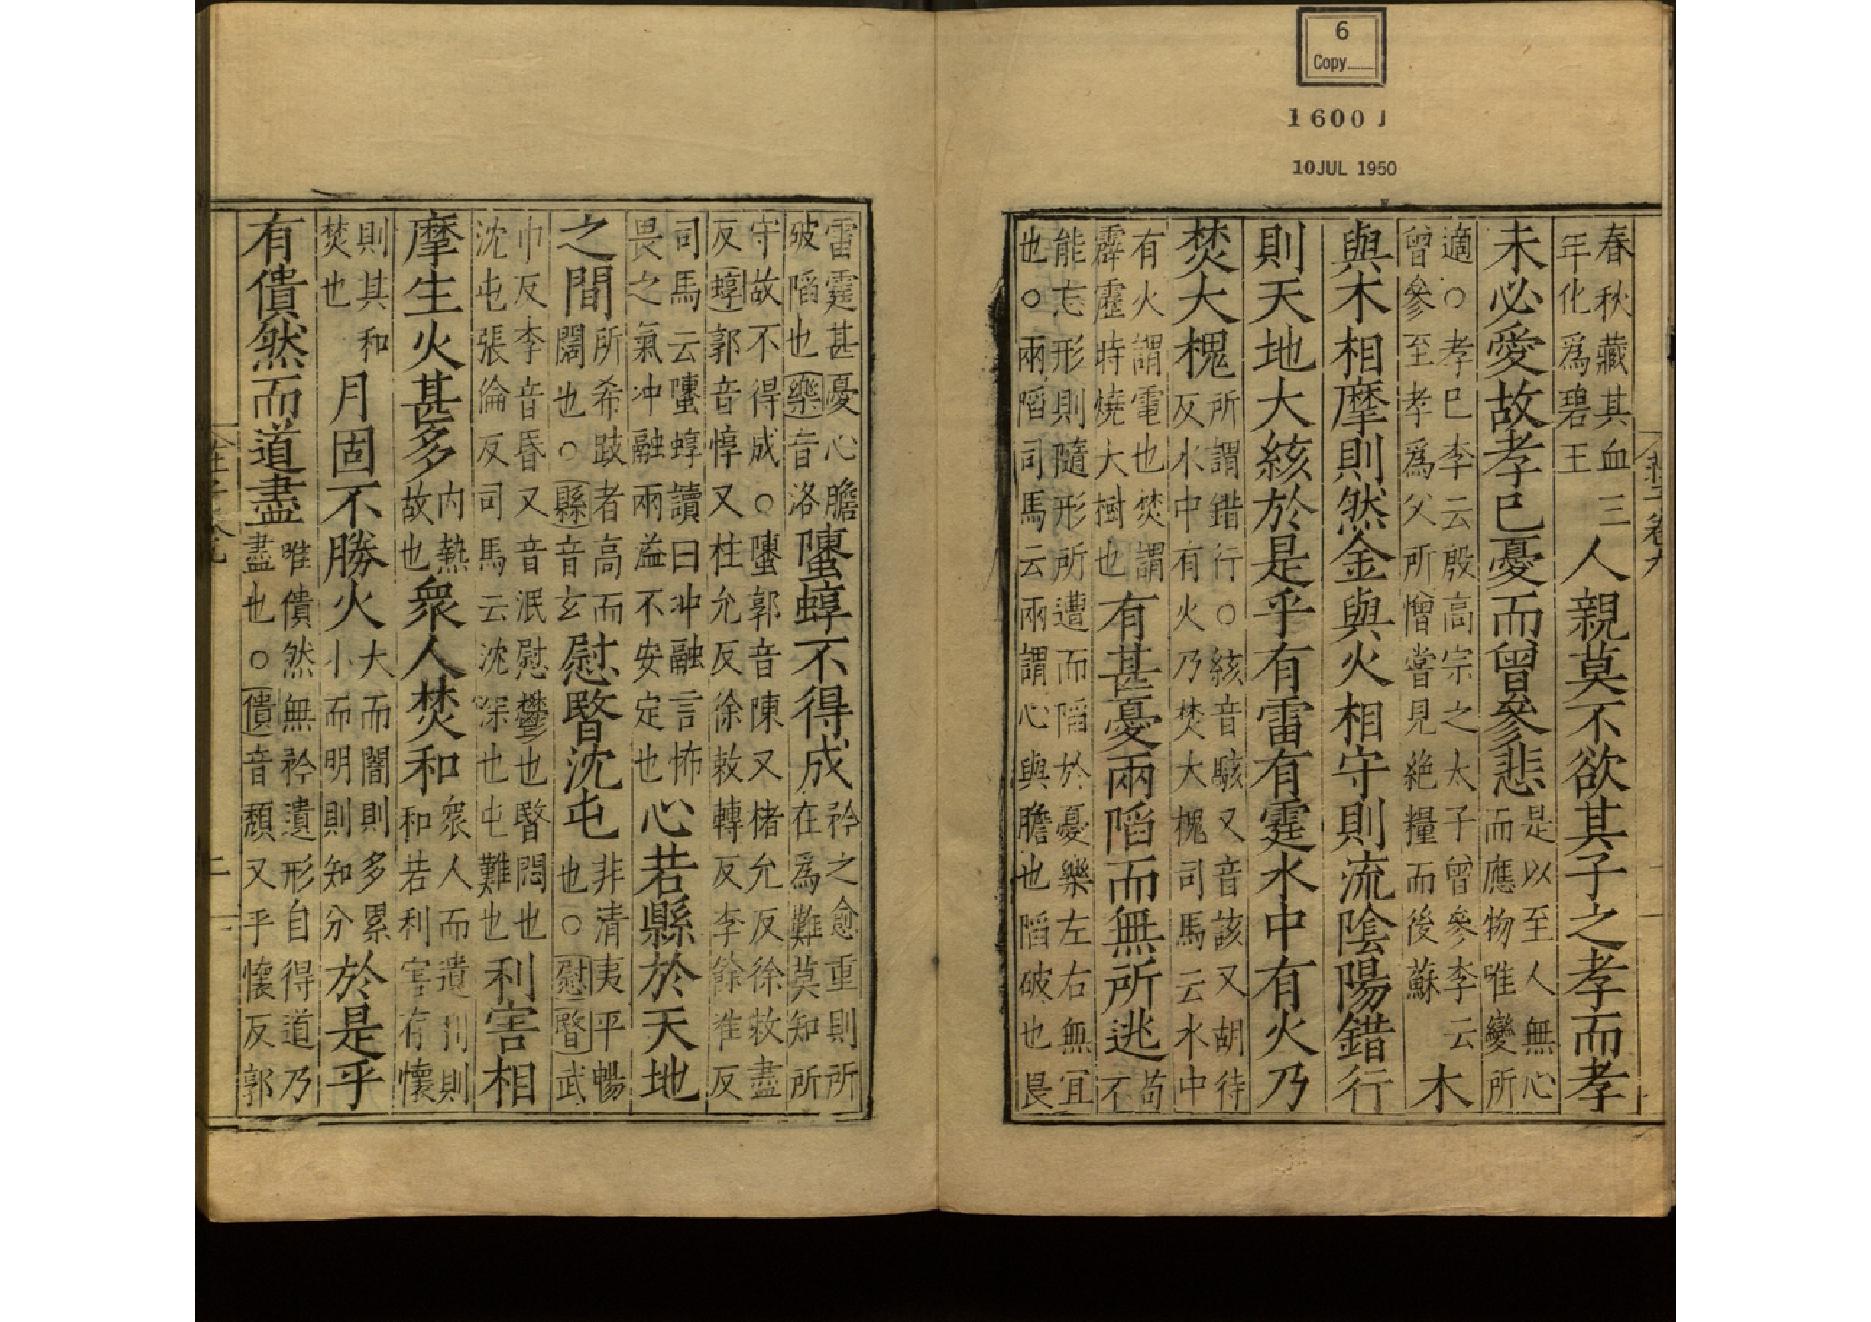 6
Copy
1600J
10JUL 1950
春秋藏其血三
年化爲碧玉
人親莫不欲其子之孝而孝
未必愛故孝已憂而曾參悲
是以至人無心
而應物唯變所
適○孝已李云殷高宗之太子曾參李云
曾參至孝爲父所憎嘗見絶糧而後蘇
木
與木相摩則然金與火相守則流陰陽錯行
則天地大絯於是乎有雷有霆水中有火乃
焚大槐
所謂錯行○絯音駭又音該又胡待
反水中有火乃焚大槐司馬云水中
有火謂電也焚謂
霹靂時燒大樹也
有甚憂兩陷而無所逃
苟不
能忘形則隨形所遭而陷於憂樂左右無宜
也○兩陷司馬云兩謂心與膽也陷破也畏
雷霆甚憂心膽
破陷也樂音洛
螴蜳不得成
矜之愈重則所
在爲難莫知所
守故不得成○螴郭音陳又楮允反徐敕盡
反蜳郭音惇又柱允反徐敕轉反李餘准反
司馬云螴蜳讀曰沖融言怖
畏之氣沖融兩溢不安定也
心若縣於天地
之間
所希跂者高而
闊也○縣音玄
慰暋沈屯
非清夷平暢
也○慰暋武
巾反李音昏又音泯慰鬱也暋悶也
沈屯張倫反司馬云沈深也屯難也
利害相
摩生火甚多
内熱
故也
衆人焚和
衆人而遺利則
和若利害有懷
則其和
焚也
月固不勝火
大而闇則多累
小而明則知分
於是乎
有僓然而道盡
唯僓然無矜遺形自得道乃
盡也○僓音頹又乎懷反郭
二